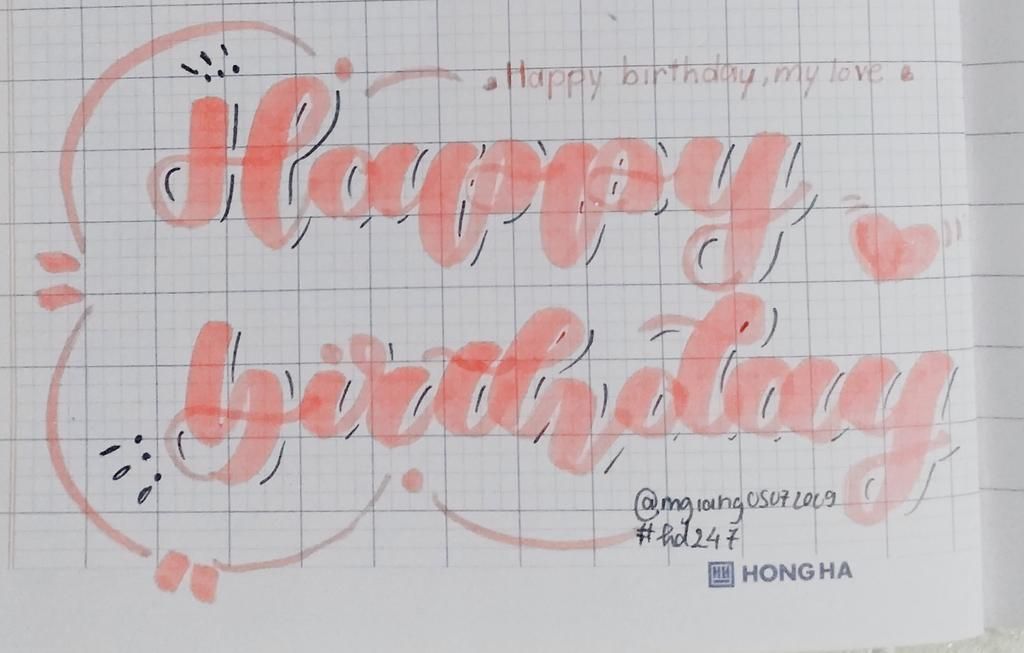 Happy birthday, my love
Happy
birthday
@mgiang05072009
#hd247
HONG HA